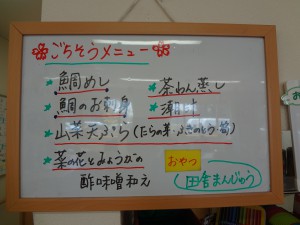 ごちそうメニュー
鯛めし
茶わん蒸し
鯛のお刺身
潮汁
山菜天ぷら(たらの芽・ふきのとう・筍)
菜の花とみょうがの
酢味噌和え
おやつ
田舎まんじゅう